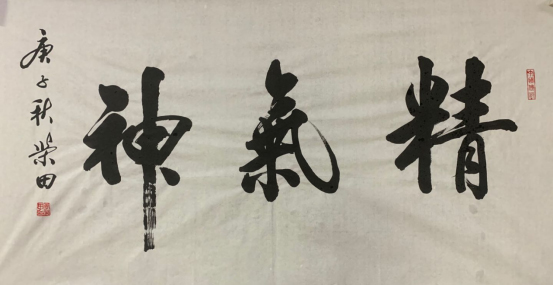 精氣神
庚子秋柴田